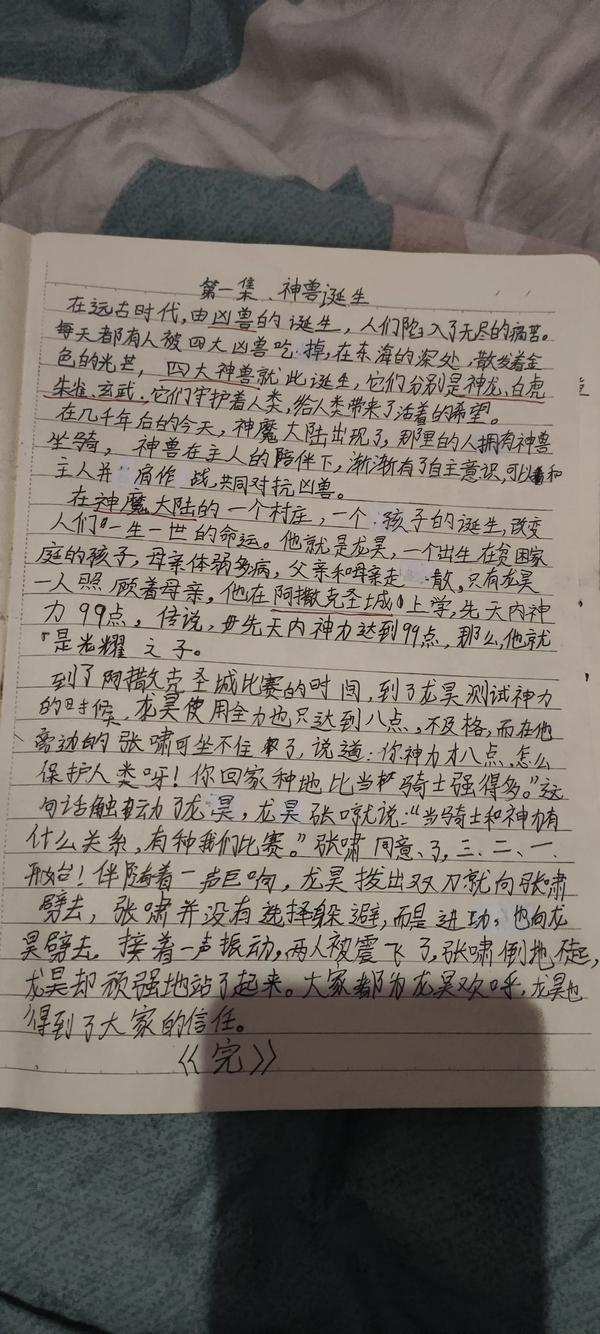 第一集、神兽诞生
在远古时代,由凶兽的诞生,人们陷入了无尽的痛苦。
每天都有人被四大凶兽吃掉,在东海的深处,散发着金
色的光芒,四大神兽就此诞生,它们分别是神龙,白虎
朱雀、玄武、它们守护着人类,给人类带来了活着的希望。
在几千年后的今天,神魔大陆出现了,那里的人拥有神兽
坐骑,神兽在主人的陪伴下,渐渐有了自主意识,可以和
主人并肩作战,共同对抗凶兽。
在神魔大陆的一个村庄,一个孩子的诞生,改变
人们一生一世的命运。他就是龙昊,一个出生在贫困家
庭的孩子,母亲体弱多病,父亲和母亲走散,只有龙昊
一人照顾着母亲,他在阿撒克圣城上学,先天内神
力99点,传说,先天内神力达到99点,那么,他就
是光耀之子。
到了阿撒克圣城比赛的时间,到了龙昊测试神力
的时候,龙昊使用全力也只达到八点,不及格,而在他
旁边的张啸可坐不住了,说道:你神力才八点,怎么
保护人类呀!你回家种地比当骑士强得多。”这
句话触动了龙昊,龙昊张口就说:“当骑士和神力有
什么关系,有种我们比赛。”张啸同意了,三、二、一、
开始!伴随着一声巨响,龙昊拔出双刀就向张啸
劈去,张啸并没有选择躲避,而是进攻,也向龙
昊劈去。接着一声振动,两人被震飞了,张啸倒地
龙昊却顽强地站了起来。大家都为龙昊欢呼,龙昊也
得到了大家的信任。
《完》